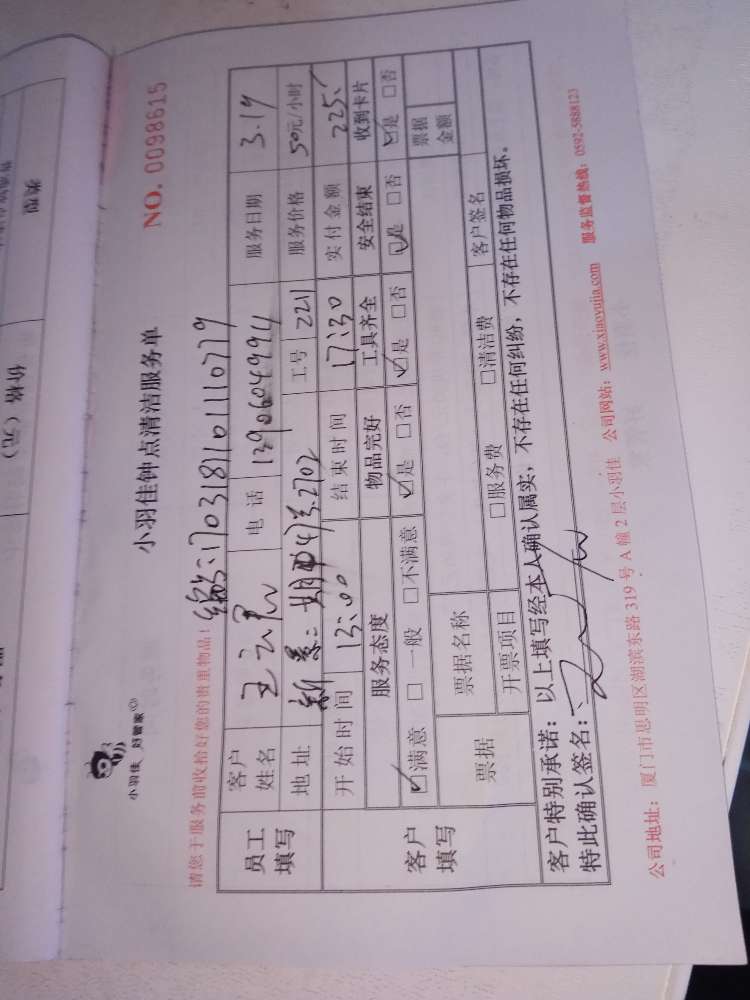 类型
价格（元）
小羽佳 好管家
小羽佳钟点清洁服务单
NO. 0098615
请您于服务前收拾好您的贵重物品！
编号：1703181101110779
员工填写 客户姓名 电话 13906049994 服务日期 3.19
地址 新景 工号 221 服务价格 50元/小时
开始时间 13:00 结束时间 17:30 实付金额 225.
客户填写 服务态度 物品完好 工具齐全 安全结束 收到卡片
☑满意 □一般 □不满意 ☑是 □否 ☑是 □否 ☑是 □否 ☑是 □否
票据 票据名称 票据金额
开票项目 □服务费 □清洁费 客户签名
客户特别承诺：以上填写经本人确认属实，不存在任何纠纷，不存在任何物品损坏。
特此确认签名：
公司地址：厦门市思明区湖滨东路 319 号 A 幢 2 层小羽佳 公司网站：www.xiaoyujia.com 服务监督热线：0592-5888123